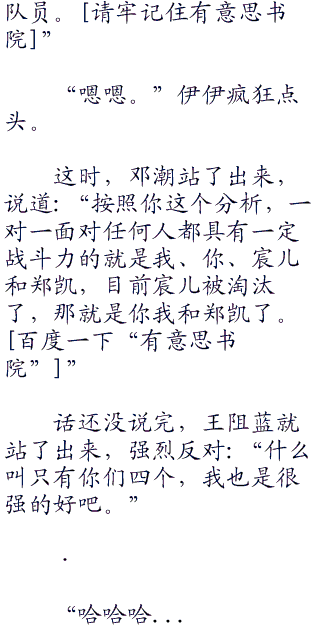 队员。[请牢记住有意思书
院]”
“嗯嗯。”伊伊疯狂点
头。
这时，邓潮站了出来，
说道：“按照你这个分析，一
对一面对任何人都具有一定
战斗力的就是我、你、宸儿
和郑凯，目前宸儿被淘汰
了，那就是你我和郑凯了。
[百度一下“有意思书
院”]”
话还没说完，王阻蓝就
站了出来，强烈反对：“什么
叫只有你们四个，我也是很
强的好吧。”
.
“哈哈哈...